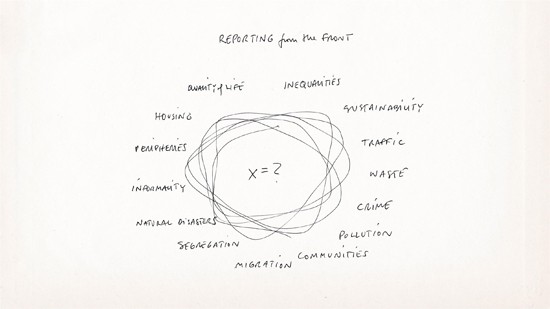 REPORTING from the FRONT
QUALITY of LIFE
INEQUALITIES
SUSTAINABILITY
TRAFFIC
WASTE
CRIME
POLLUTION
COMMUNITIES
MIGRATION
SEGREGATION
NATURAL DISASTERS
INFORMALITY
PERIPHERIES
HOUSING
X = ?